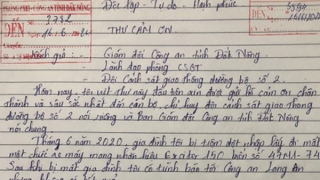 PHÒNG PC08 - CÔNG AN TỈNH ĐẮK NÔNG
ĐẾN
Độc lập - Tự do - Hạnh phúc
THƯ CẢM ƠN
Kính gửi: - Giám đốc Công an tỉnh Đắk Nông.
- Lãnh đạo phòng CSGT
- Đội Cảnh sát giao thông đường bộ số 2.
Hôm nay, tôi viết thư này đầu tiên xin được gửi lời cảm ơn chân
thành và sâu sắc nhất đến cán bộ, chỉ huy đội cảnh sát giao thông
đường bộ số 2 nói riêng và Ban Giám đốc Công an tỉnh Đắk Nông
nói chung.
Tháng 6 năm 2020, gia đình tôi bị trộm đột nhập lấy đi mất
một chiếc xe máy mang nhãn hiệu Exciter 150 biển số 47M1-74
Sau khi bị mất gia đình tôi có trình báo tới Công an